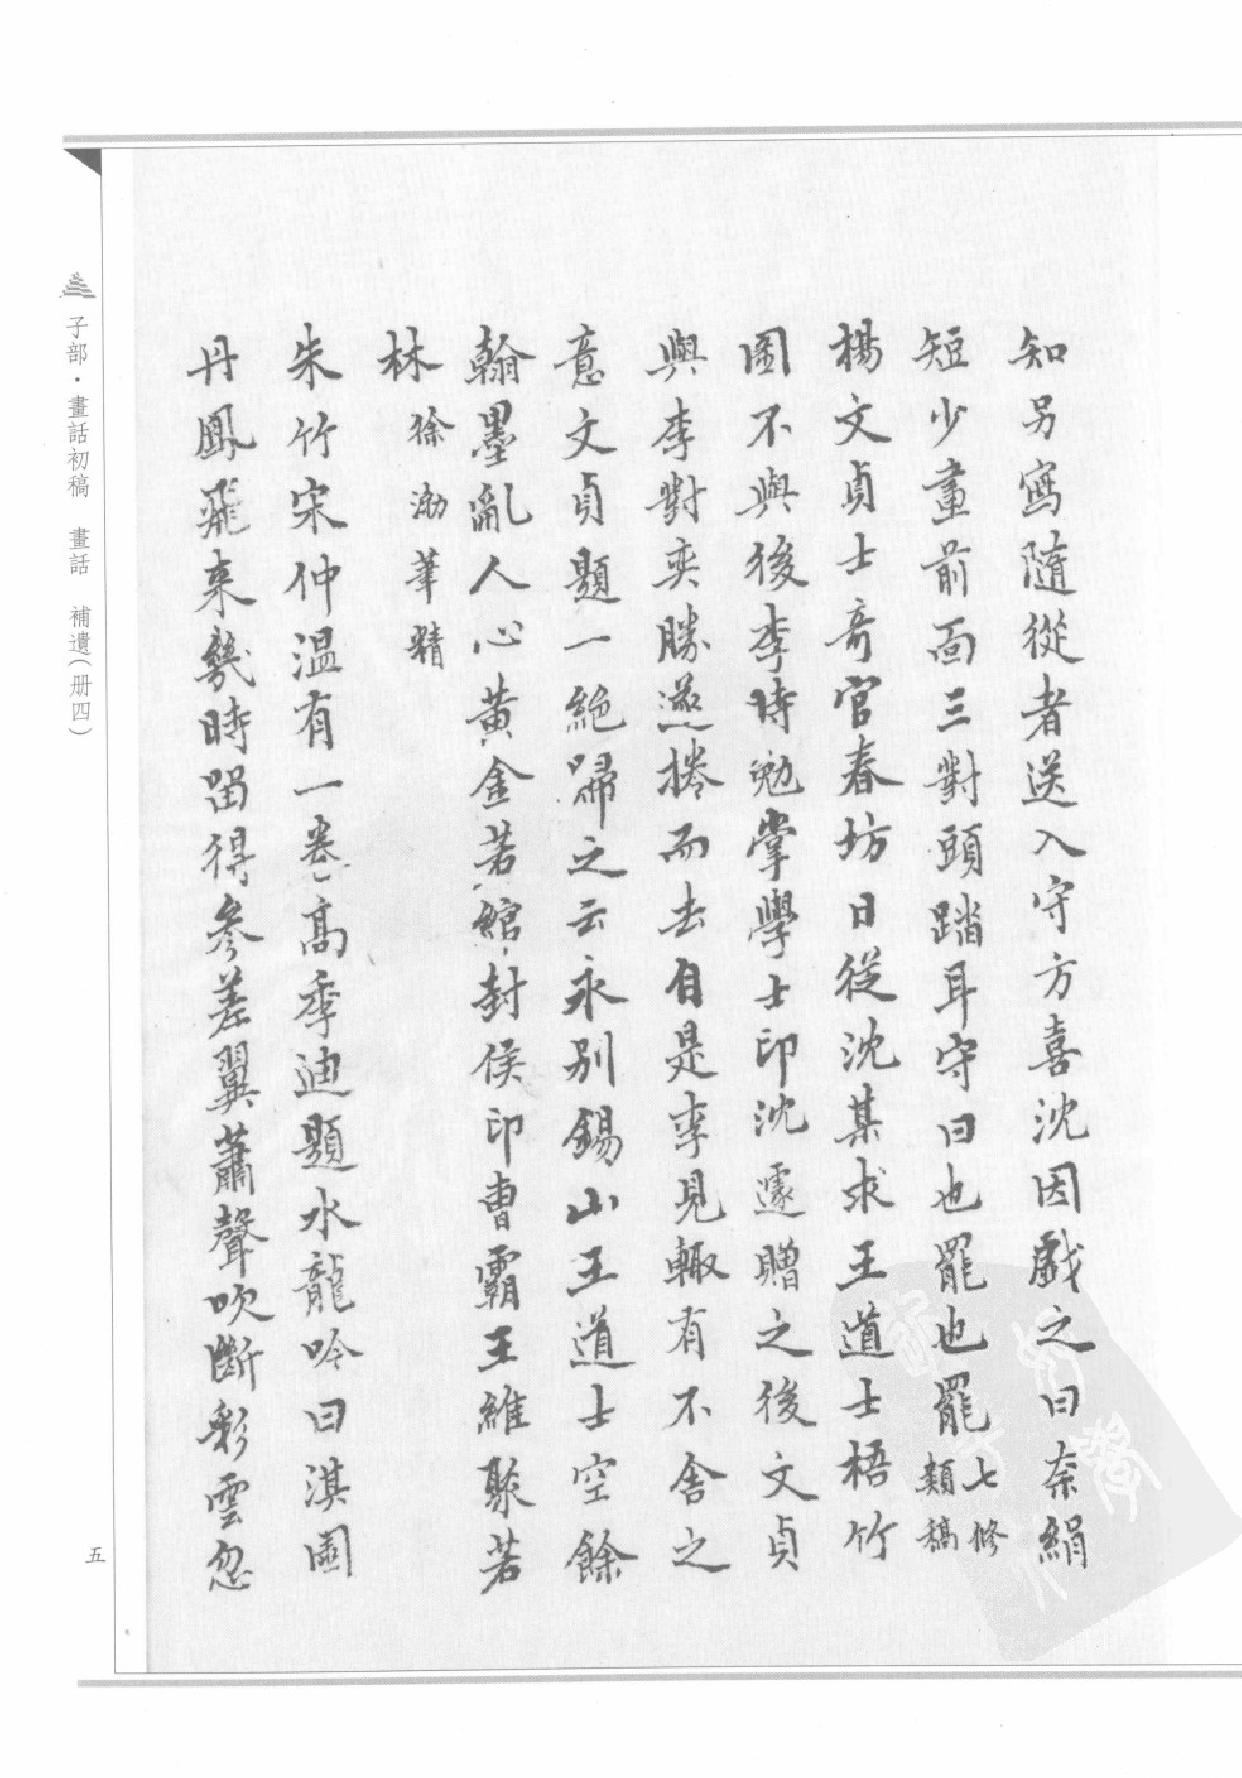 知另寫隨從者送入守方喜沈因戲之曰奈絹
短少畫前面三對頭踏耳守曰也罷也罷七修類稿
楊文貞士奇官春坊日從沈某求王道士梧竹
圖不與後李時勉掌學士印沈遽贈之後文貞
與李對奕勝遂捲而去自是李見輙有不舍之
意文貞題一絕歸之云永別錫山王道士空餘
翰墨亂人心黃金若綰封侯印曹霸王維聚若
林徐𤊹筆精
朱竹宋仲温有一卷高季迪題水龍吟曰淇園
丹鳳飛来幾時留得參差翼蕭聲吹斷彩雲忽
子部·畫話初稿 畫話 補遺(册四)
五